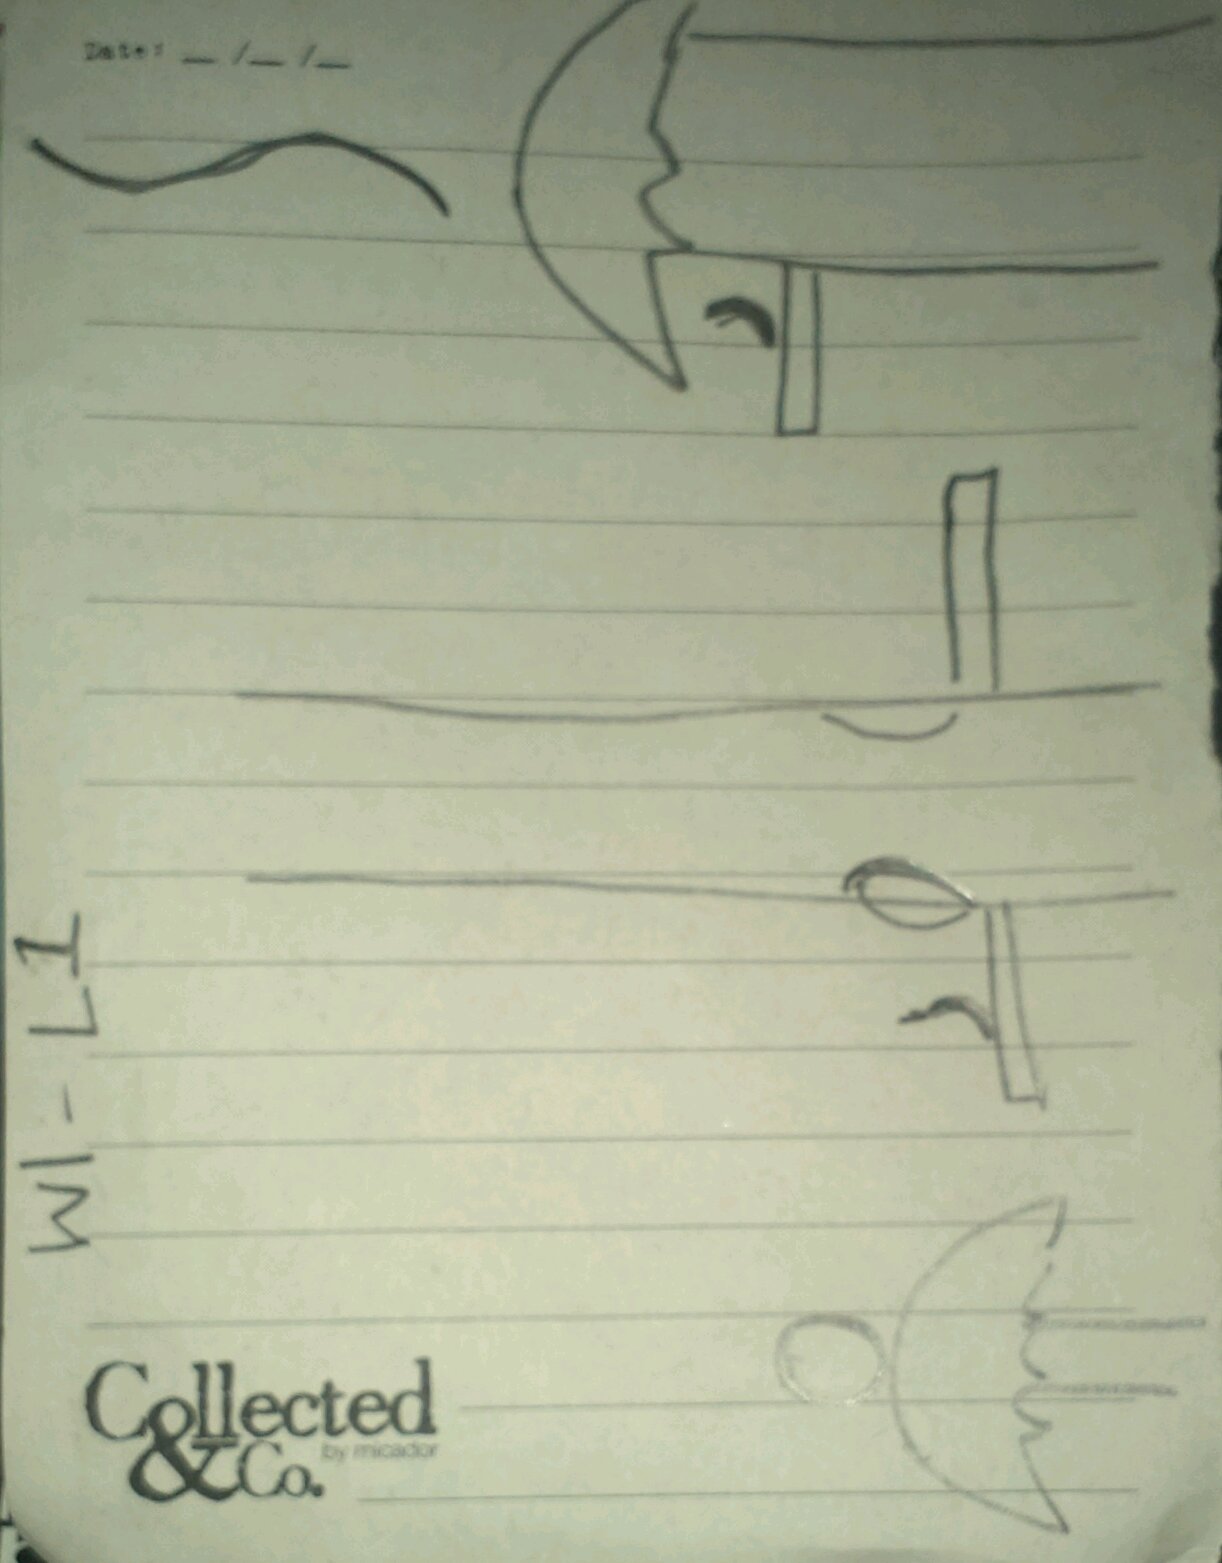 Date: __ /__ /__
W1 - L1
Collected
& Co.
by micador